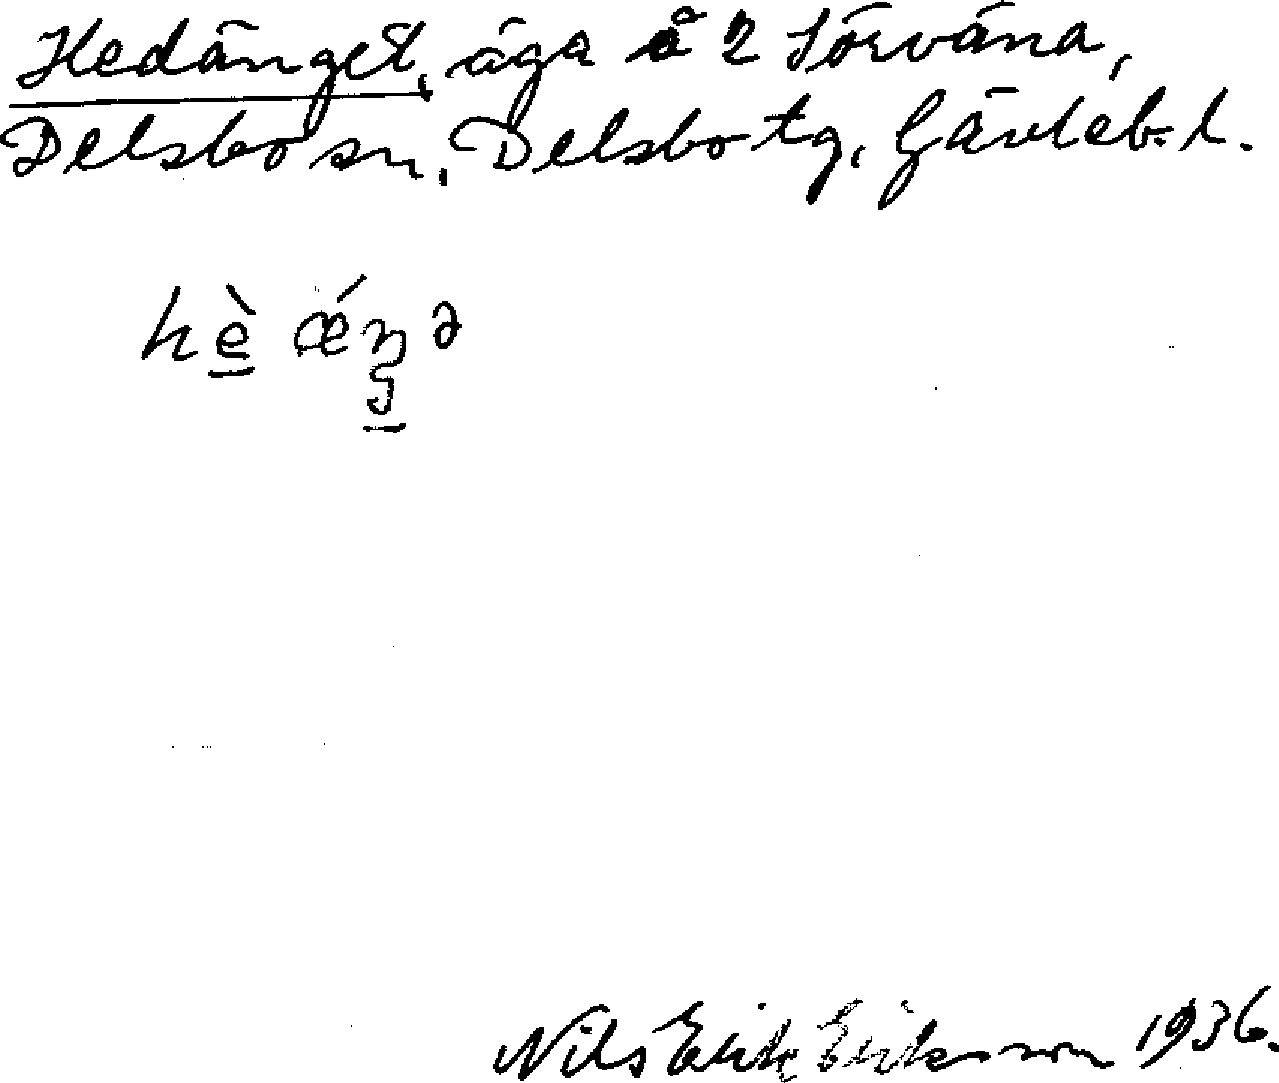 Hedänget, äga å 2 Sörväna,
Delsbo sn, Delsbo tg, Gävleb. l.
hè ǽŋə
Nils Erik Eriksson 1936.